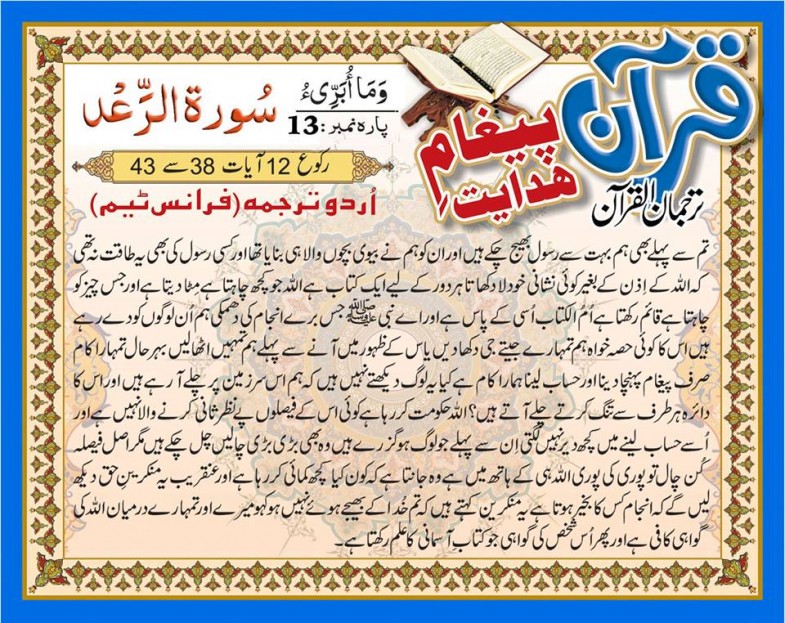 قرآن
پیغامِ
ھدایت
ترجمان القرآن
وَمَا أُبَرِّیءُ
پارہ نمبر:13
سُورۃ الرَّعْد
رکوع 12 آیات 38 سے 43
اُردو ترجمہ (فرانس ٹیم)
تم سے پہلے بھی ہم بہت سے رسول بھیج چکے ہیں اور ان کو ہم نے بیوی بچوں والا ہی بنایا تھا اور کسی رسول کی بھی یہ طاقت نہ تھی
کہ اللہ کے اِذن کے بغیر کوئی نشانی خود لا دکھاتا ہر دور کے لیے ایک کتاب ہے اللہ جو کچھ چاہتا ہے مٹا دیتا ہے اور جس چیز کو
چاہتا ہے قائم رکھتا ہے اُم الکتاب اُسی کے پاس ہے اور اے نبی ﷺ جس برے انجام کی دھمکی ہم اُن لوگوں کو دے رہے
ہیں اس کا کوئی حصہ خواہ ہم تمہارے جیتے جی دکھا دیں یا س کے ظہور میں آنے سے پہلے ہم تمہیں اٹھا لیں بہر حال تمہارا کام
صرف پیغام پہنچا دینا اور حساب لینا ہمارا کام ہے کیا یہ لوگ دیکھتے نہیں ہیں کہ ہم اس سرزمین پر چلے آ رہے ہیں اور اس کا
دائرہ ہر طرف سے تنگ کرتے چلے آتے ہیں؟ اللہ حکومت کر رہا ہے کوئی اس کے فیصلوں پے نظر ثانی کرنے والا نہیں ہے اور
اُسے حساب لینے میں کچھ دیر نہیں لگتی اِن سے پہلے جو لوگ ہو گزرے ہیں وہ بھی بڑی بڑی چالیں چل چکے ہیں مگر اصل فیصلہ
کُن چال تو پوری کی پوری اللہ ہی کے ہاتھ میں ہے وہ جانتا ہے کہ کون کیا کچھ کمائی کر رہا ہے اور عنقریب یہ منکرینِ حق دیکھ
لیں گے کہ انجام کس کا بخیر ہوتا ہے یہ منکرین کہتے ہیں کہ تم خُدا کے بھیجے ہوئے نہیں ہو کہو میرے اور تمہارے درمیان اللہ کی
گواہی کافی ہے اور پھر اُس شخص کی گواہی جو کتابِ آسمانی کا علم رکھتا ہے۔